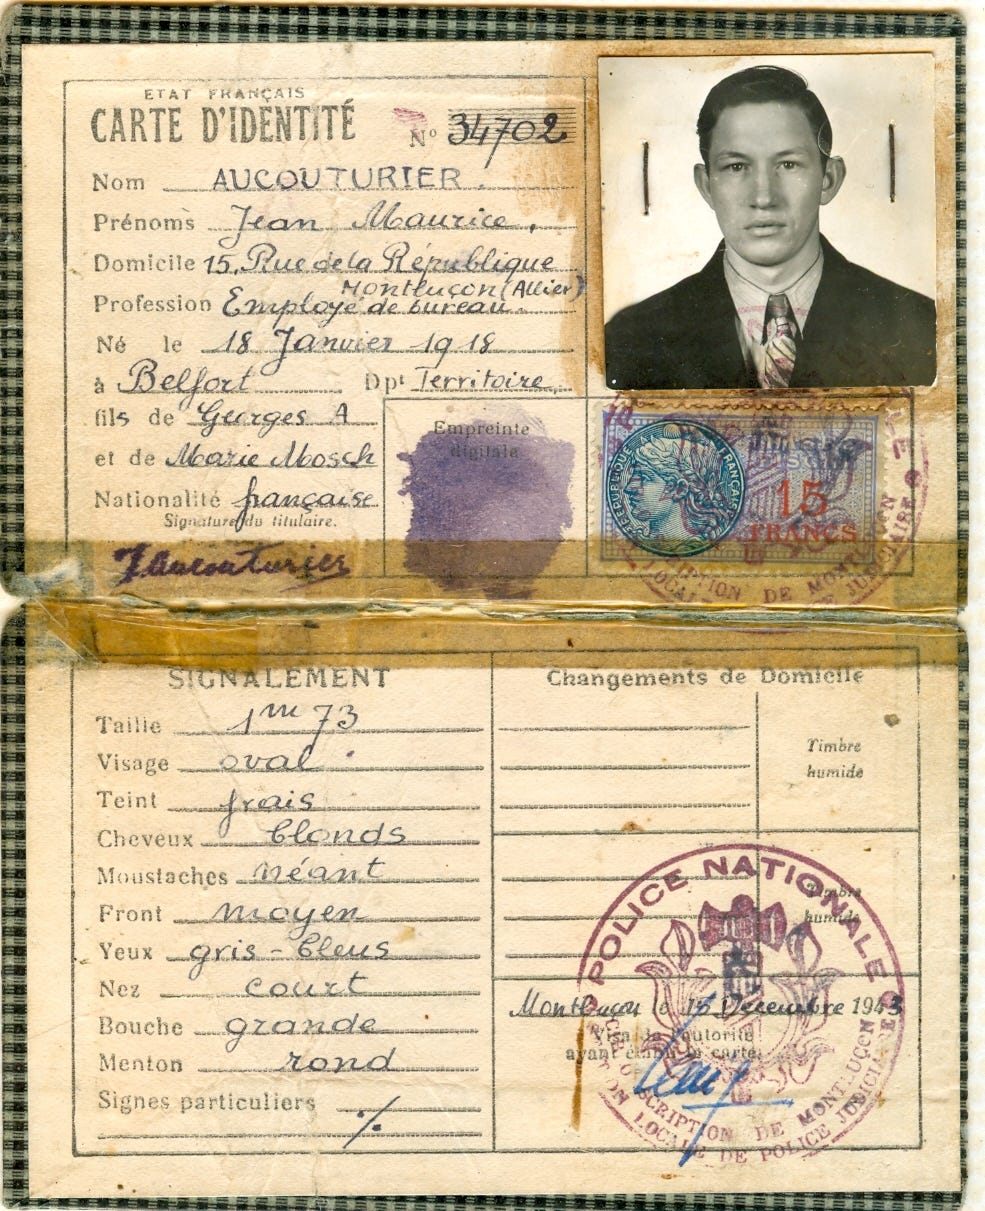 ETAT FRANÇAIS
CARTE D'IDENTITÉ
N° 34702
Nom AUCOUTURIER.
Prénoms Jean Maurice,
Domicile 15, Rue de la République
Montluçon (Allier)
Profession Employé de bureau.
Né le 18 Janvier 1918
à Belfort Dpt Territoire
fils de Georges A
et de Marie Mosch
Nationalité française
Signature du titulaire.
J Aucouturier
Empreinte
digitale
REPUBLIQUE FRANÇAISE
15
FRANCS
SIGNALEMENT
Taille 1m 73
Visage oval
Teint frais
Cheveux blonds
Moustaches néant
Front moyen
Yeux gris-bleus
Nez court
Bouche grande
Menton rond
Signes particuliers
Changements de Domicile
Timbre
humide
Timbre
humide
Montluçon le 15 Décembre 1943
Visa de l'autorité
ayant établi la carte
POLICE NATIONALE
CIRCONSCRIPTION DE MONTLUÇON
LOCALE DE POLICE JUDICIAIRE